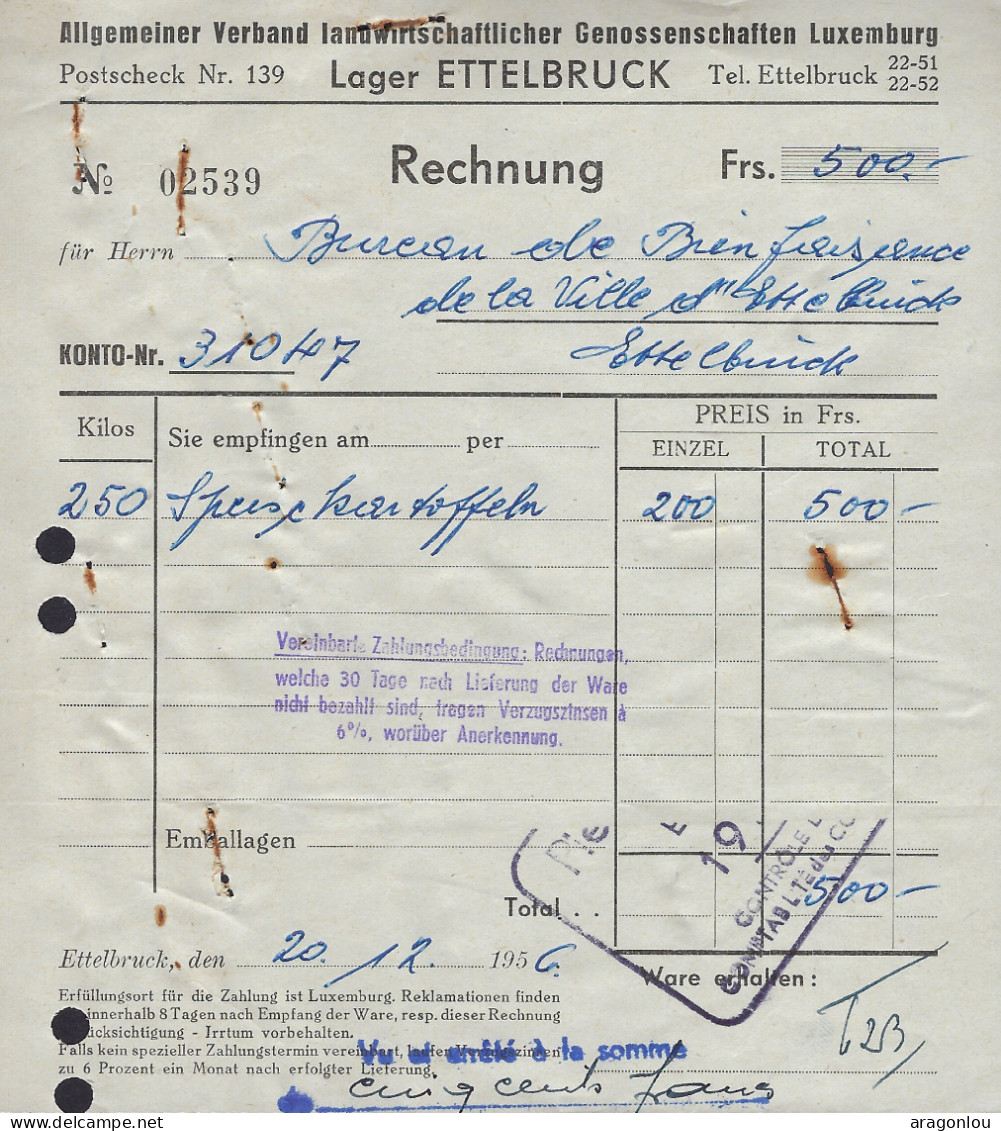 Allgemeiner Verband landwirtschaftlicher Genossenschaften Luxemburg
Postscheck Nr. 139 Lager ETTELBRUCK Tel. Ettelbruck 22-51
22-52
№ 02539 Rechnung Frs. 500.-
für Herrn Bureau de Bienfaisance
de la Ville d'Ettelbruck
KONTO-Nr. 310447 Ettelbruck
Kilos Sie empfingen am per PREIS in Frs.
EINZEL TOTAL
250 Speisekartoffeln 200 500 -
Vereinbarte Zahlungsbedingung: Rechnungen,
welche 30 Tage nach Lieferung der Ware
nicht bezahlt sind, tragen Verzugszinsen à
6%, worüber Anerkennung.
Emballagen
19
CONTRÔLE
COMPTABILITÉ des CO
Total . . 500 -
Ettelbruck, den 20. 12. 1956.
Ware erhalten :
Erfüllungsort für die Zahlung ist Luxemburg. Reklamationen finden
innerhalb 8 Tagen nach Empfang der Ware, resp. dieser Rechnung
ücksichtigung - Irrtum vorbehalten.
Falls kein spezieller Zahlungstermin vereinbart, laufen Verzugszinsen
zu 6 Prozent ein Monat nach erfolgter Lieferung.
Vu et arrêté à la somme
cinq cents francs
aragonlou